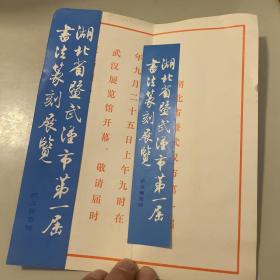 湖北省暨武汉市第一届
书法篆刻展览
年九月二十五日上午九时在
武汉展览馆开幕，敬请届时
湖北省暨武汉市第一届
书法篆刻展览